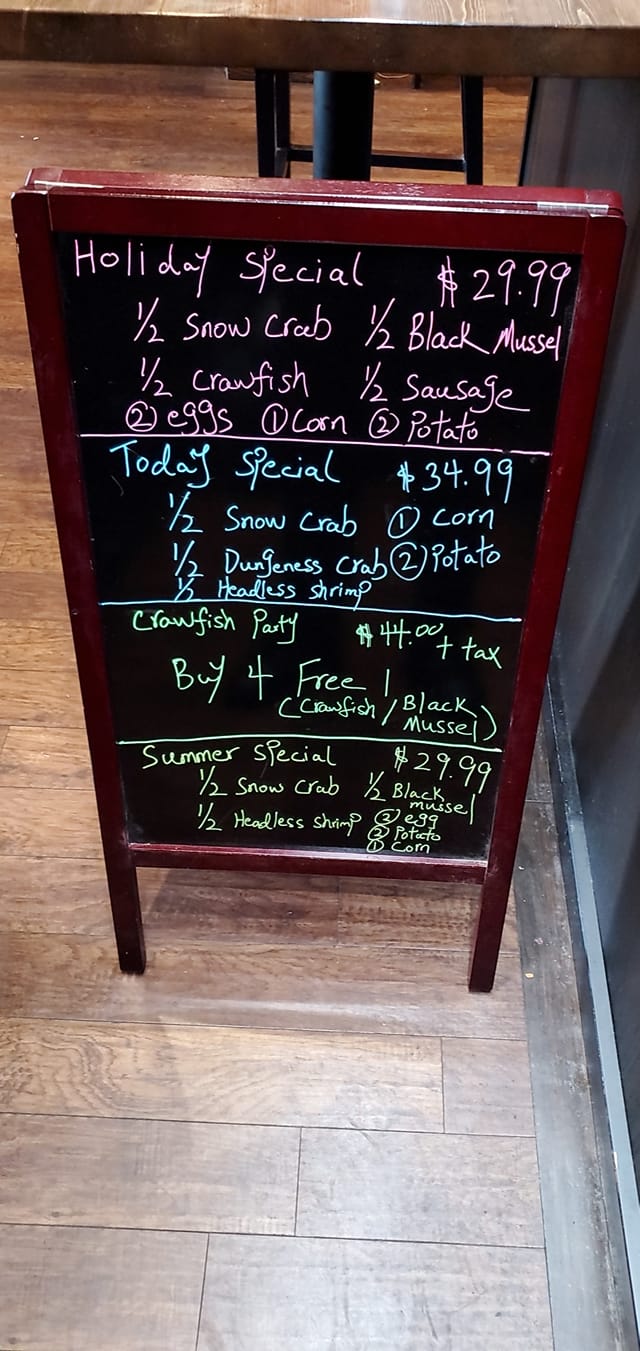 Holiday Special $29.99
1/2 Snow Crab 1/2 Black Mussel
1/2 Crawfish 1/2 Sausage
② eggs ① Corn ② Potato
Today Special $34.99
1/2 Snow Crab ① Corn
1/2 Dungeness Crab ② Potato
1/2 Headless shrimp
Crawfish Party $44.00 + tax
Buy 4 Free 1
(Crawfish / Black
Mussel)
Summer Special $29.99
1/2 Snow Crab 1/2 Black
mussel
1/2 Headless shrimp ② egg
② Potato
① Corn